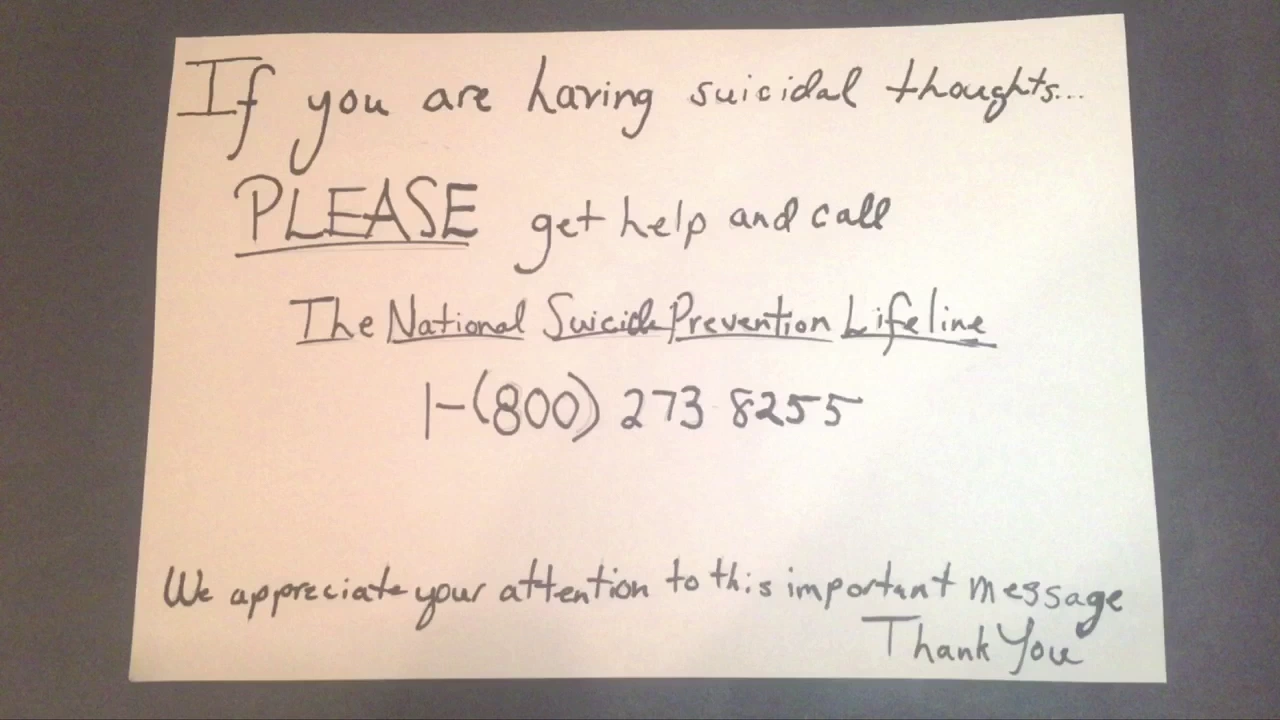 If you are having suicidal thoughts...
PLEASE get help and call
The National Suicide Prevention Lifeline
1-(800) 273 8255
We appreciate your attention to this important message
Thank You